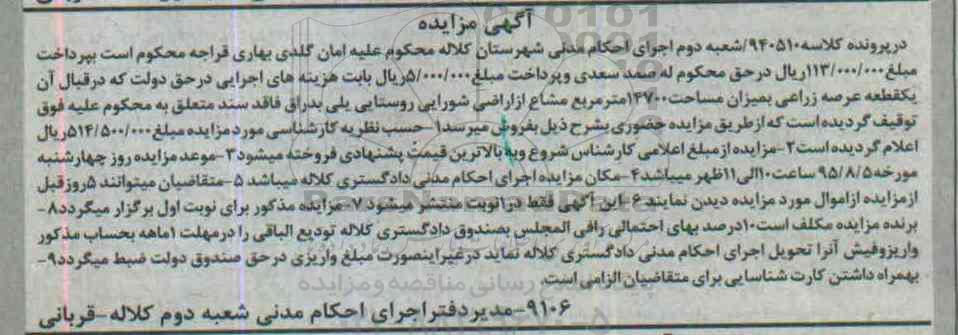 آگهی مزایده
درپرونده کلاسه۹۴۰۵۱۰/شعبه دوم اجرای احکام مدنی شهرستان کلاله محکوم علیه امان گلدی بهاری قراجه محکوم است بپرداخت
مبلغ۱۱۳/۰۰۰/۰۰۰ریال درحق محکوم له صمد سعدی وپرداخت مبلغ۵/۰۰۰/۰۰۰ریال بابت هزینه های اجرایی درحق دولت که درقبال آن
یکقطعه عرصه زراعی بمیزان مساحت۱۴۷۰۰مترمربع مشاع ازاراضی شورایی روستایی یلی بدراق فاقد سند متعلق به محکوم علیه فوق
توقیف گردیده است که ازطریق مزایده حضوری بشرح ذیل بفروش میرسد۱-حسب نظریه کارشناسی موردمزایده مبلغ۵۱۴/۵۰۰/۰۰۰ریال
اعلام گردیده است۲-مزایده ازمبلغ اعلامی کارشناس شروع وبه بالاترین قیمت پیشنهادی فروخته میشود۳-موعدمزایده روز چهارشنبه
مورخه۹۵/۸/۵ ساعت۱۰الی۱۱ظهر میباشد۴-مکان مزایده اجرای احکام مدنی دادگستری کلاله میباشد ۵-متقاضیان میتوانند ۵روزقبل
ازمزایده ازاموال مورد مزایده دیدن نمایند ۶-این آگهی فقط در۱نوبت منتشر میشود ۷-مزایده مذکور برای نوبت اول برگزار میگردد۸-
برنده مزایده مکلف است۱۰درصد بهای احتمالی رافی المجلس بصندوق دادگستری کلاله تودیع الباقی را درمهلت ۱ماهه بحساب مذکور
واریزوفیش آنرا تحویل اجرای احکام مدنی دادگستری کلاله نماید درغیراینصورت مبلغ واریزی درحق صندوق دولت ضبط میگردد۹-
بهمراه داشتن کارت شناسایی برای متقاضیان الزامی است
۹۱۰۶-مدیردفتراجرای احکام مدنی شعبه دوم کلاله-قربانی